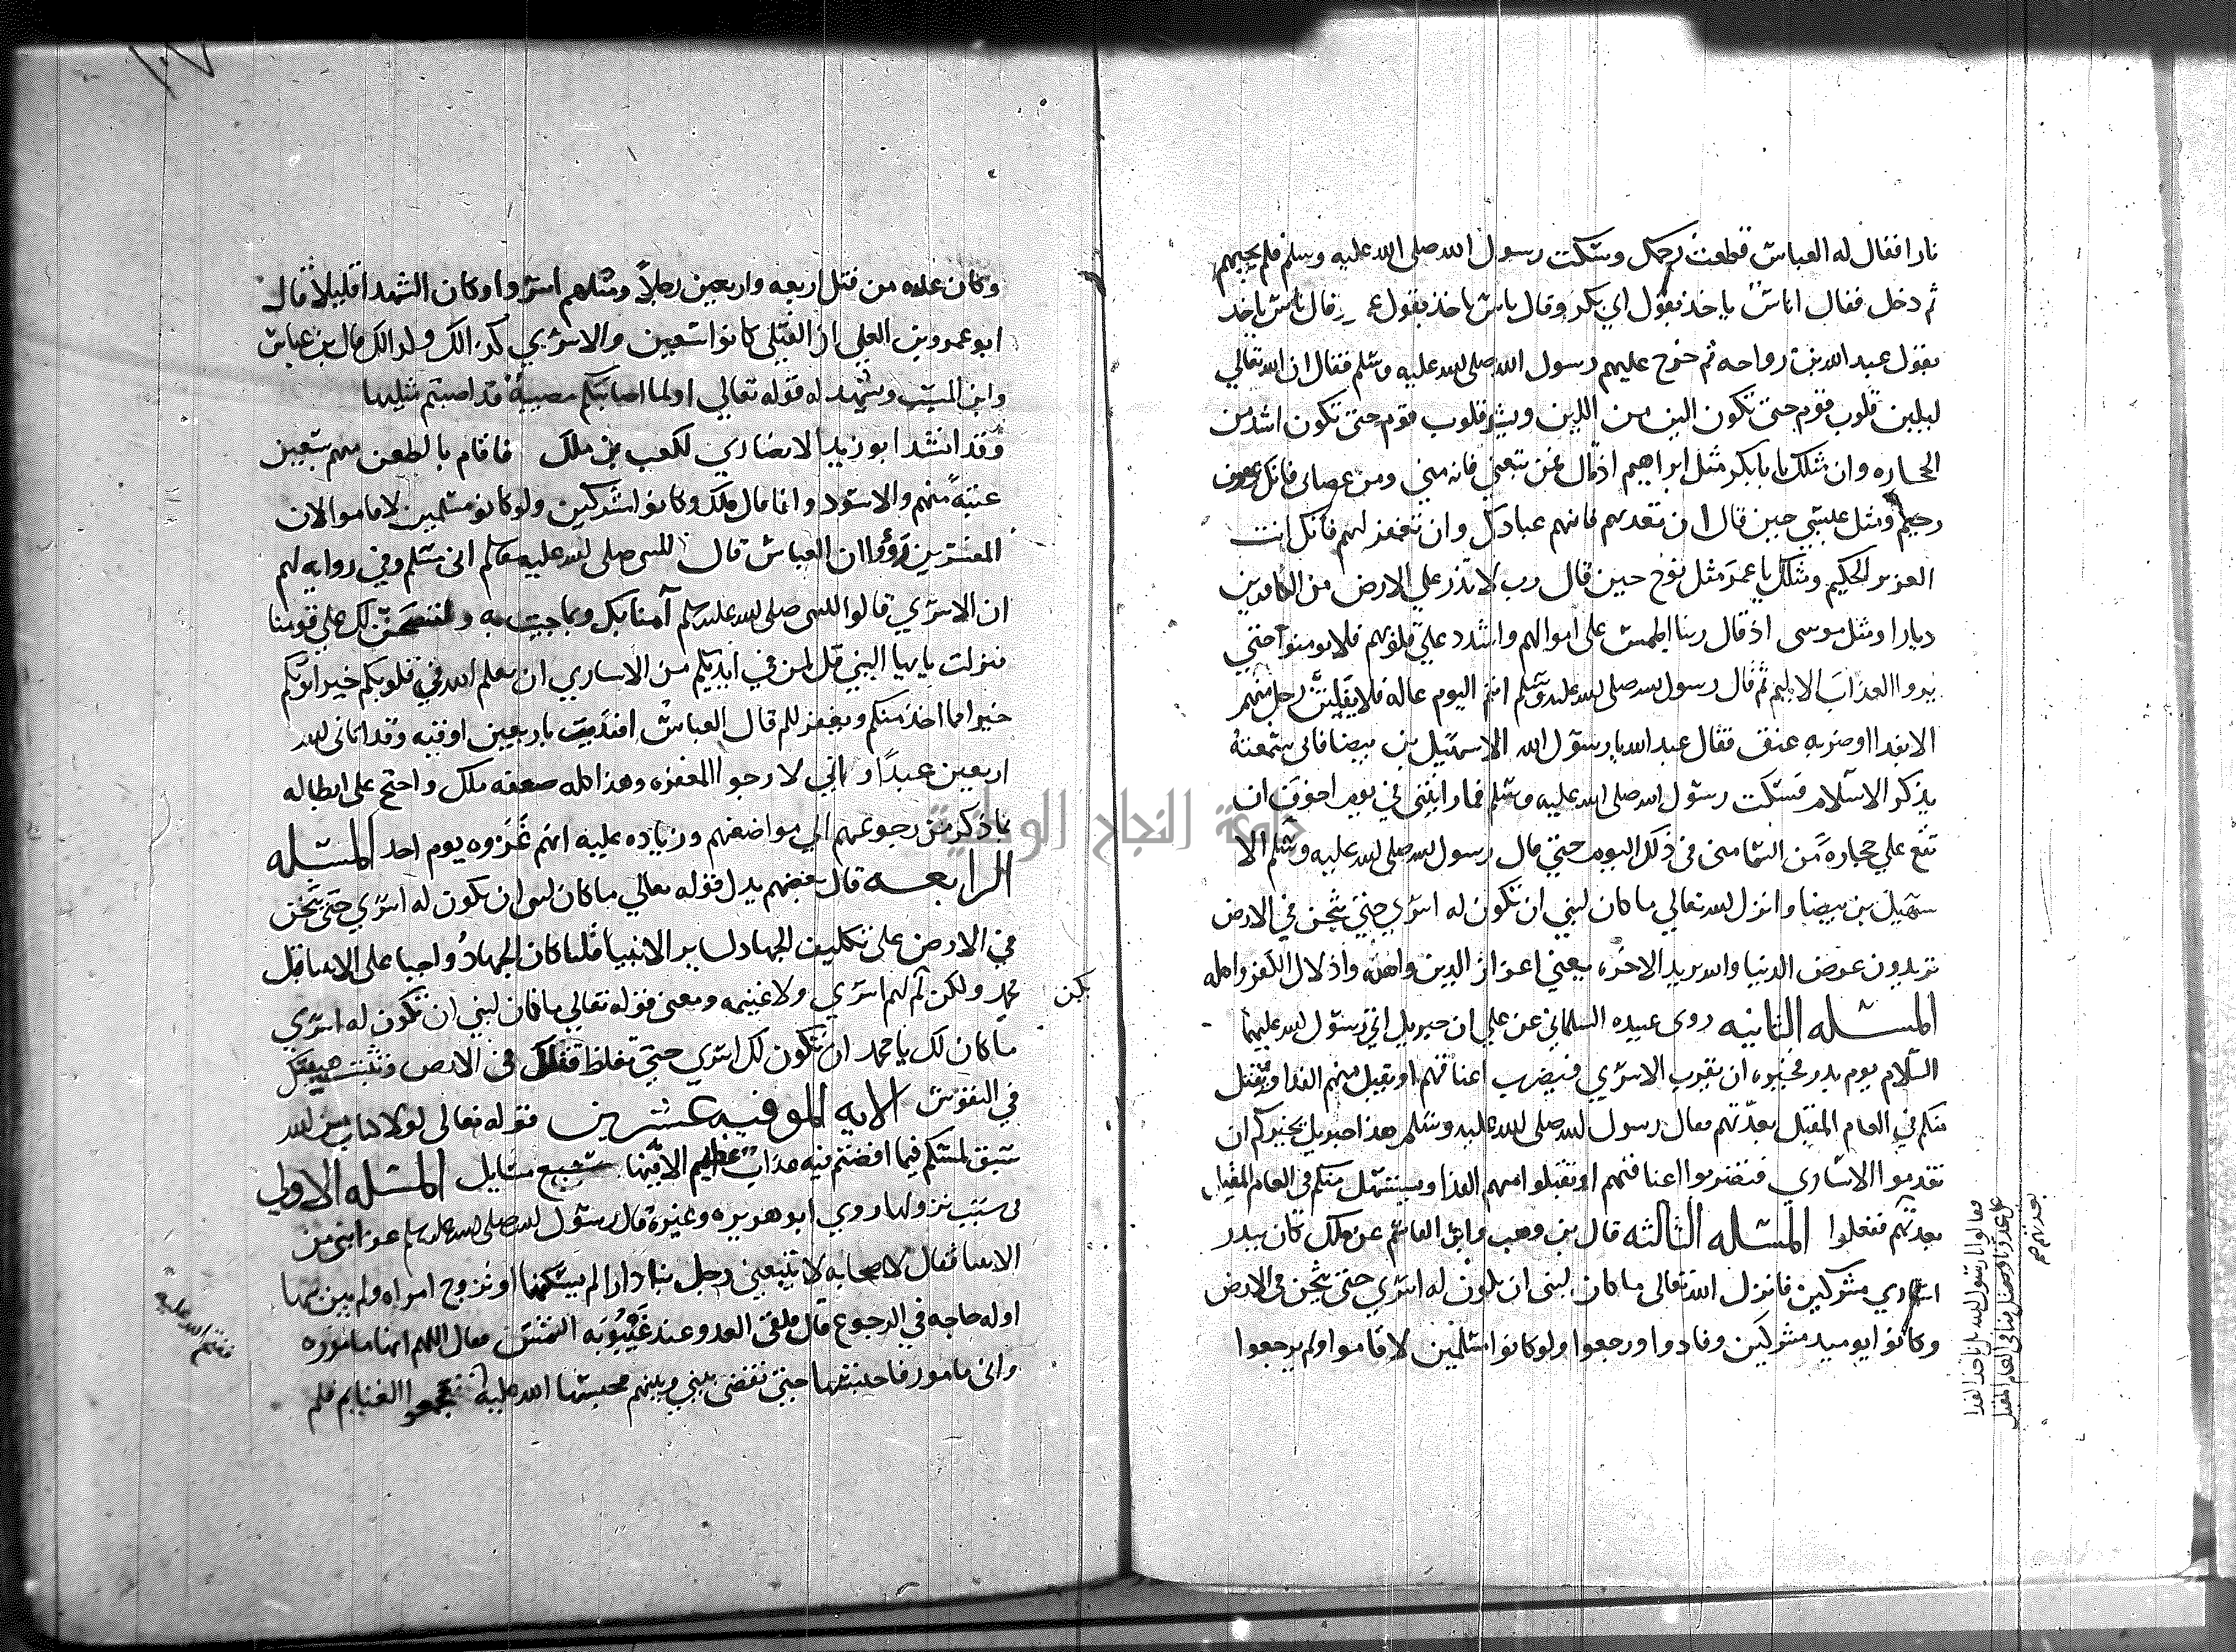 نارا فقال له العباس قطعت رحمك وسكت رسول الله صلى الله عليه وسلم فلم يجبهم
ثم دخل فقال اناس ياخذ بقول ابي بكر وقال ناس ياخذ بقول عمر وقال ناس ياخذ
بقول عبد الله بن رواحه ثم خرج عليهم رسول الله صلى الله عليه وسلم فقال ان الله تعالي
ليلين قلوب قوم حتى تكون الين من اللين ويشد قلوب قوم حتى تكون اشد من
الحجاره وان مثلك يا با بكر مثل ابراهيم اذ قال فمن تبعني فانه مني ومن عصاني فانك غفور
رحيم ومثل عيسي حين قال ان تعذبهم فانهم عبادك وان تغفر لهم فانك انت
العزيز الحكيم ومثلك يا عمر مثل نوح حين قال رب لا تذر علي الارض من الكافرين
ديارا ومثل موسى اذ قال ربنا اطمس على اموالهم واشدد علي قلوبهم فلا يومنوا حتي
يروا العذاب الاليم ثم قال رسول الله صلى الله عليه وسلم انتم اليوم عاله فلا يفلتن رجل منهم
الا بفدا او ضربه عنق فقال عبد الله يا رسول الله الا سهيل بن بيضا فاني سمعته
يذكر الاسلام فسكت رسول الله صلى الله عليه وسلم فما رايتني في يوم اخوف ان
تقع علي حجارة من السما مني في ذلك اليوم حتي قال رسول الله صلى الله عليه وسلم الا
سهيل بن بيضا وانزل الله تعالي ما كان لنبي ان تكون له اسري حتي يثخن في الارض
تريدون عرض الدنيا والله يريد الاخره يعني اعزاز الدين واهله واذلال الكفر واهله
المسئله الثانيه روى عبيده السلماني عن علي ان جبريل اتي رسول الله عليهما
السلام يوم بدر فخيره ان يقرب الاسري فيضرب اعناقهم او يقبل منهم الفدا ويقتل
منكم في العام المقبل بعدتهم فقال رسول الله صلى الله عليه وسلم هذا جبريل يخيركم ان
تقدموا الاساري فتضربوا اعناقهم او تقبلوا منهم الفدا ويستشهد منكم في العام المقبل
بعدتهم ففعلوا المسئله الثالثه قال بن وهب وابن القاسم عن ملك كان ببدر
اساري مشركين فانزل الله تعالى ما كان لنبي ان يكون له اسري حتى يثخن في الارض
وكانوا يوميد مشركين وفادوا ورجعوا ولو كانوا مسلمين لاقاموا ولم يرجعوا
فقالوا يا رسول الله بل ناخذ الفدا
بعدتهم صح
وكان عده من قتل اربعه واربعين رجلاً ومثلهم اسروا وكان الشهدا قليلا قال
ابو عمرو بن العلي ان القتلى كانوا سبعين والاسري كذالك ولذالك قال بن عباس
وابن المسيب ويشهد له قوله تعالي اولما اصابتكم مصيبة قد اصبتم مثليها
وقد انشد ابو زيد الانصاري لكعب بن ملك فاقام بالطعن منهم سبعين
عتبة منهم والاسود وانما قال ملك وكانوا مشركين ولو كانوا مسلمين لاقاموا لان
المفسرين رووا ان العباس قال للنبي صلى الله عليه وسلم اني مسلم وفي روايه لهم
ان الاسري قالوا للنبي صلى الله عليه وسلم آمنا بك وبما جيت به ولننصحن لك علي قومنا
فنزلت يايها النبي قل لمن في ايديكم من الاساري ان يعلم الله في قلوبكم خيرا يوتكم
خيرا مما اخذ منكم ويغفر لكم قال العباس افتديت باربعين اوقيه وقد اتاني الله
اربعين عبدًا واني لارجوا المغفره وهذا كله ضعفه ملك واحتج على ابطاله
بما ذكر من رجوعهم الي مواضعهم وزياده عليه انهم غزوه يوم احد المسئله
الرابعه قال بعضهم يدل قوله تعالي ما كان لنبي ان يكون له اسري حتى يثخن
في الارض على تكليف الجهاد لساير الانبيا قلنا كان الجهاد واجبا على الانبيا قبل
محمد ولكن لم لهم اسري ولا غنيمه ومعنى قوله تعالي ما كان لنبي ان تكون له اسري
يكن
ما كان لك يا محمد ان تكون لك اسري حتى تغلظ في الارض وتثبت هيبتك
في النفوس الايه الموفيه عشرين قوله تعالى لولا كتاب من الله
سبق لمسكم فيما افضتم فيه عذاب عظيم الايه فيها سبع مسايل المسئله الاولي
في سبب نزولها روي ابو هريره وغيره قال رسول الله صلى الله عليه وسلم غزا نبي من
الانبيا فقال لاصحابه لا يتبعني رجل بنا دارا لم يسكنها او تزوج امراه ولم يبن بها
او له حاجه في الرجوع قال فلقي العدو عند غيبوبه الشمس فقال اللهم انها ماموره
واني مامور فاحبسها حتى تقضى بيني وبينهم فحبسها الله عليه فجمعوا الغنايم فلم
ففتح الله عليه